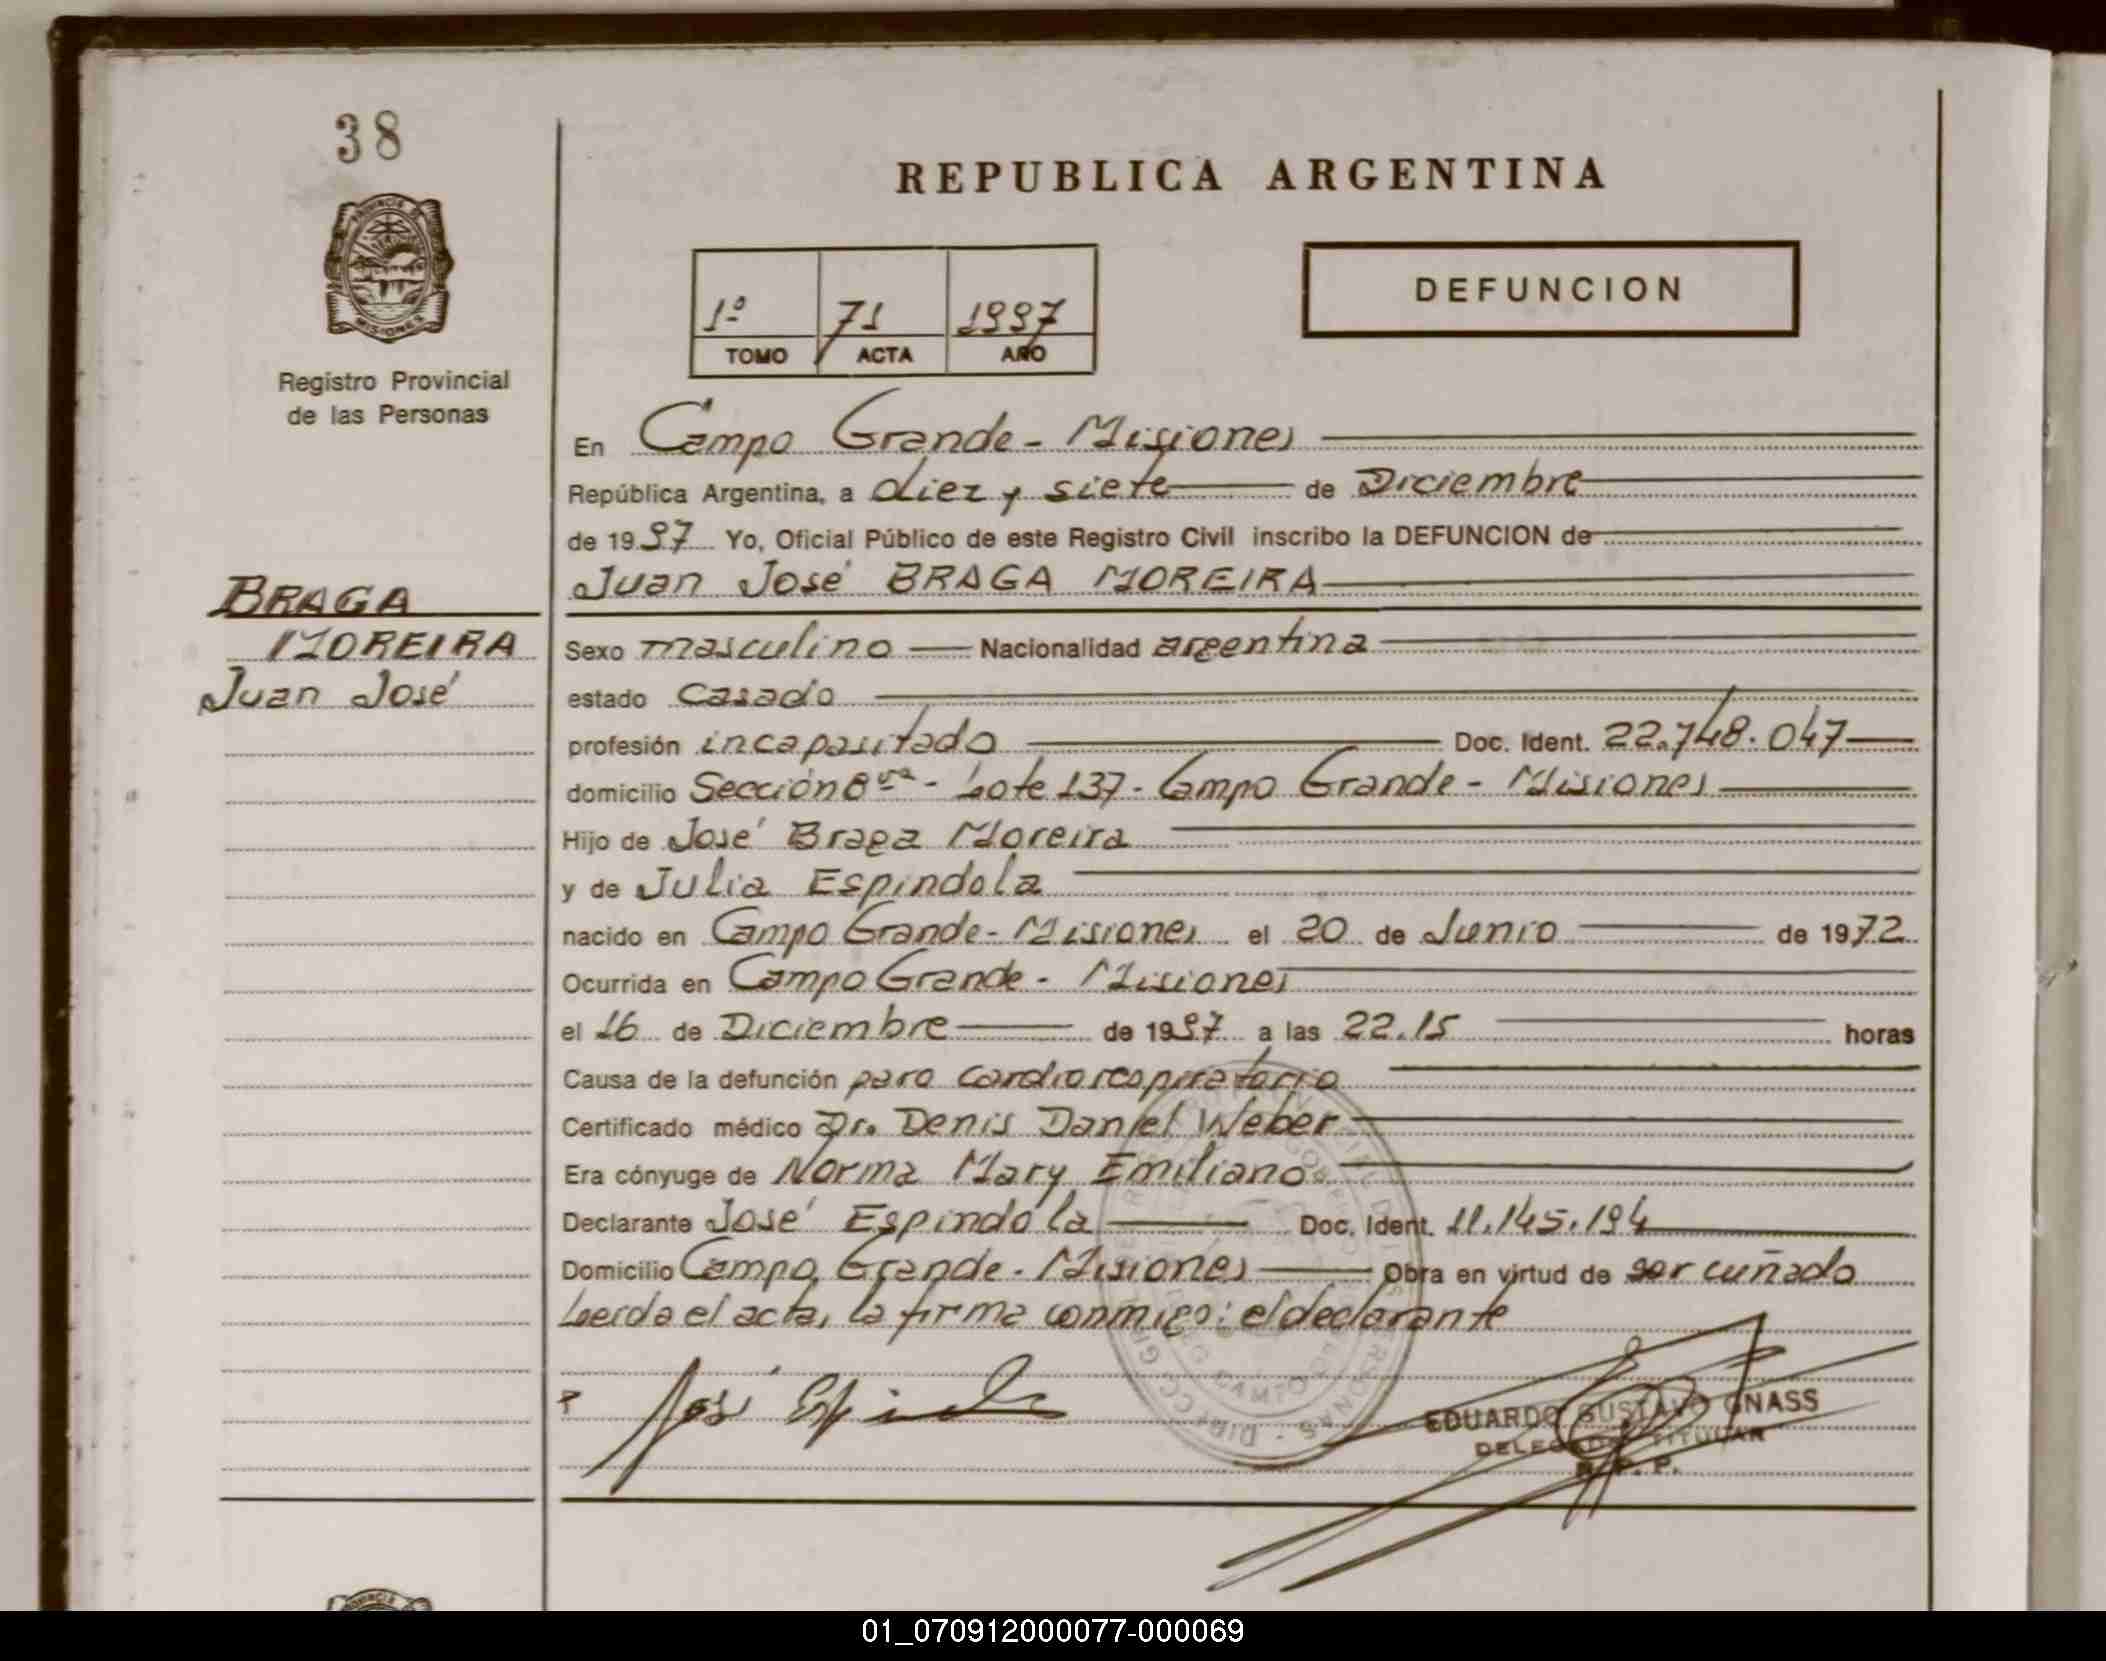 38
REPUBLICA ARGENTINA
PROVINCIA DE
MISIONES
Registro Provincial
de las Personas
1º 71 1997
TOMO ACTA AÑO
DEFUNCION
En Campo Grande - Misiones
República Argentina, a diez y siete de Diciembre
de 1997 Yo, Oficial Público de este Registro Civil inscribo la DEFUNCION de
Juan José BRAGA MOREIRA
BRAGA
MOREIRA
Juan José
Sexo masculino Nacionalidad argentina
estado Casado
profesión incapasitado Doc. Ident. 22.748.047
domicilio Sección 8va - Lote 137 - Campo Grande - Misiones
Hijo de José Braga Moreira
y de Julia Espindola
nacido en Campo Grande - Misiones el 20 de Junio de 1972
Ocurrida en Campo Grande - Misiones
el 16 de Diciembre de 1997 a las 22.15 horas
Causa de la defunción paro cardiorespiratorio
Certificado médico Dr. Denis Daniel Weber
Era cónyuge de Norma Mary Emiliano
Declarante José Espindola Doc. Ident. 11.145.194
Domicilio Campo Grande - Misiones Obra en virtud de ser cuñado
Leida el acta, la firma conmigo: el declarante
José Espindola
EDUARDO GUSTAVO GNASS
DELEGADO TITULAR
R. P. P.
01_070912000077-000069